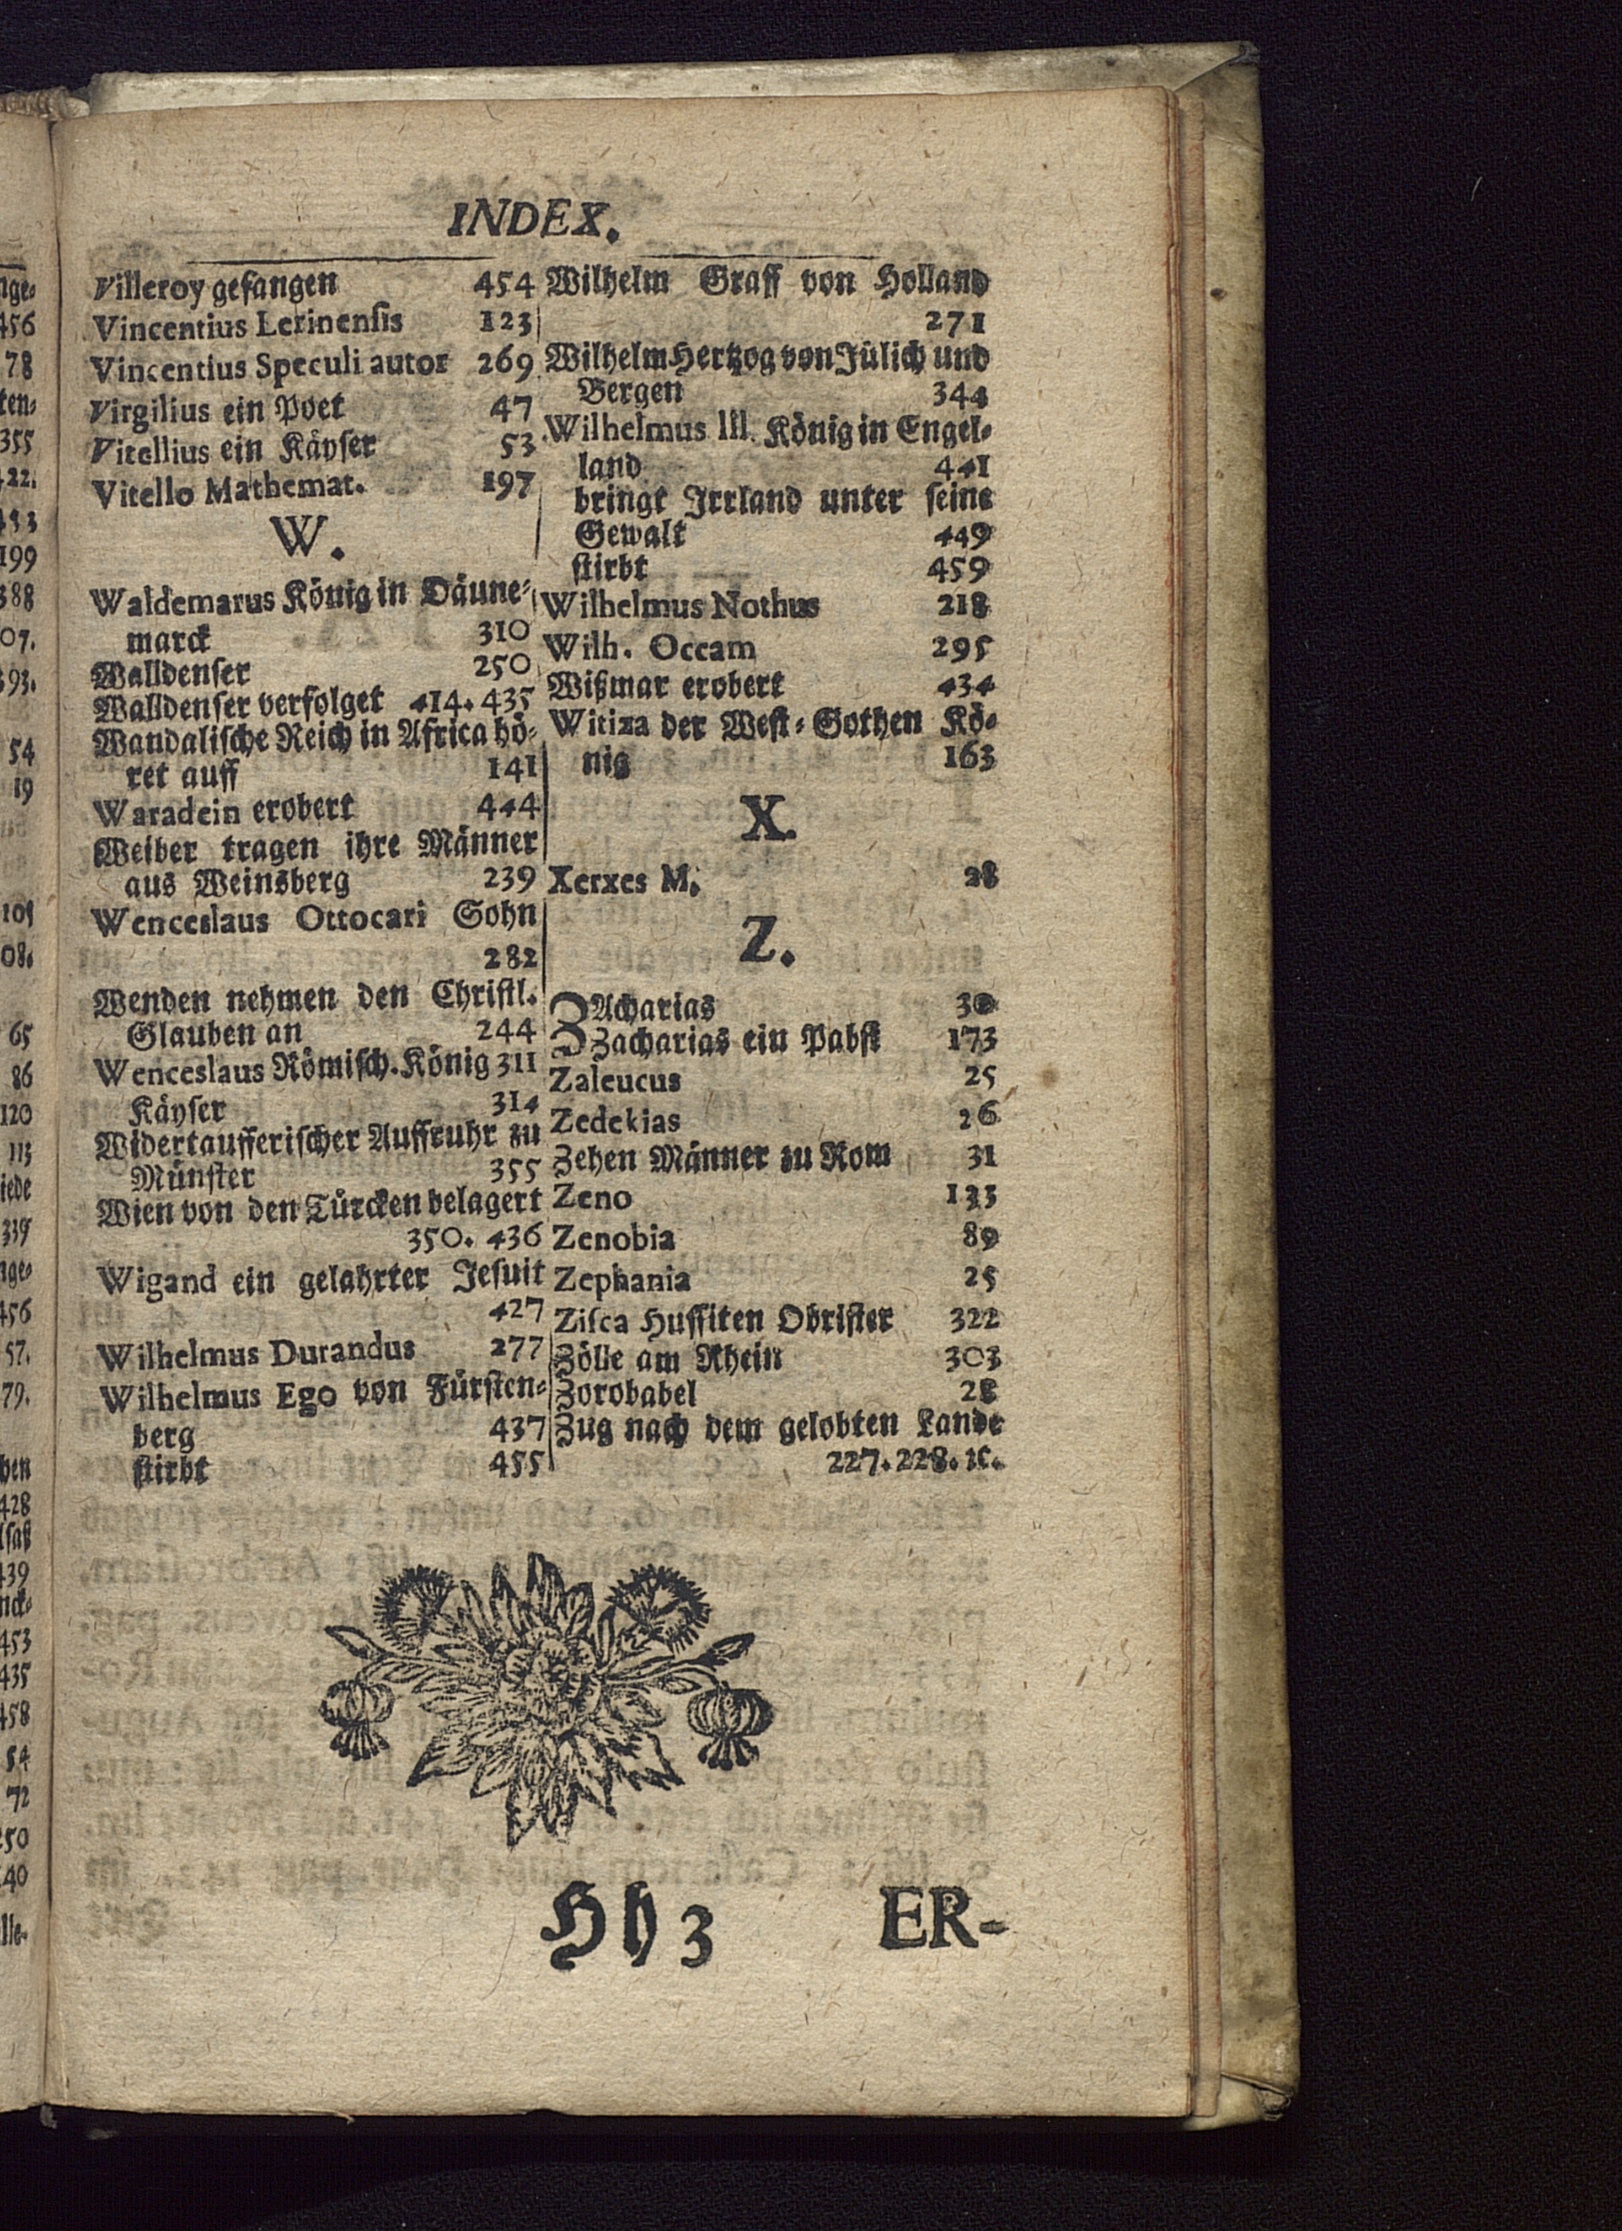 INDEX.
Villeroy gefangen 454
Vincentius Lerinensis 123
Vincentius Speculi autor 269
Virgilius ein Poet 47
Vitellius ein Käyser 53
Vitello Mathemat. 197
W.
Waldemarus König in Däune-
marck 310
Walldenser 250
Walldenser verfolget 414. 435
Wandalische Reich in Africa hö-
ret auff 141
Waradein erobert 444
Weiber tragen ihre Männer
aus Weinsberg 239
Wenceslaus Ottocari Sohn
282
Wenden nehmen den Christl.
Glauben an 244
Wenceslaus Römisch. König 311
Käyser 314
Widertaufferischer Auffruhr zu
Münster 355
Wien von den Türcken belagert
350. 436
Wigand ein gelahrter Jesuit
427
Wilhelmus Durandus 277
Wilhelmus Ego von Fürsten-
berg 437
stirbt 455
Wilhelm Graff von Holland
271
Wilhelm Hertzog von Jülich und
Bergen 344
Wilhelmus III. König in Engel-
land 441
bringt Irrland unter seine
Gewalt 449
stirbt 459
Wilhelmus Nothus 218
Wilh. Occam 295
Wißmar erobert 434
Witiza der West-Gothen Kö-
nig 163
X.
Xerxes M. 28
Z.
ZAcharias 30
Zacharias ein Pabst 173
Zaleucus 25
Zedekias 26
Zehen Männer zu Rom 31
Zeno 133
Zenobia 89
Zephania 25
Zisca Hussiten Obrister 322
Zölle am Rhein 303
Zorobabel 28
Zug nach dem gelobten Lande
227. 228. ꝛc.
Hh 3 ER-